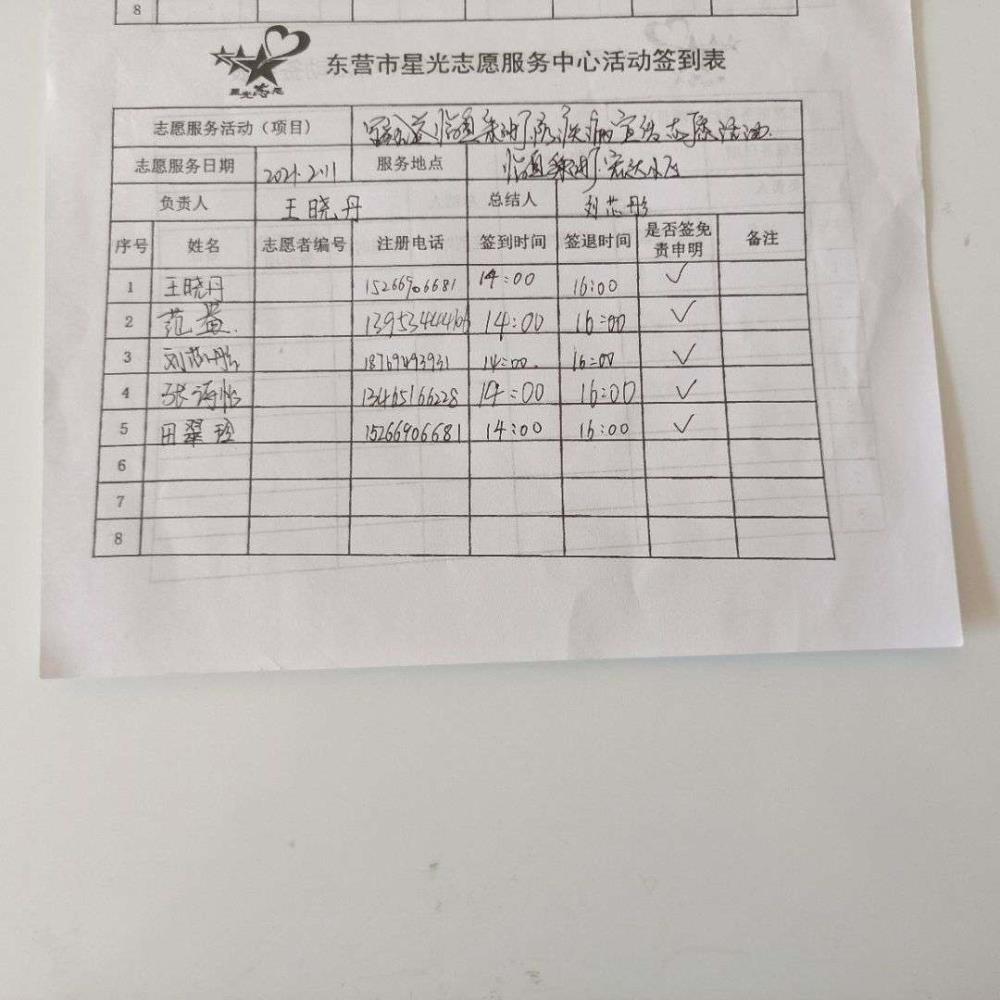 8
星光志愿
东营市星光志愿服务中心活动签到表
志愿服务活动（项目） 公益临邑 疾病宣传志愿活动.
志愿服务日期 2021.2.11 服务地点 临邑 宏达小区
负责人 王晓丹 总结人 刘芯彤
序号 姓名 志愿者编号 注册电话 签到时间 签退时间 是否签免责申明 备注
1 王晓丹 15266906681 14:00 16:00 ✓
2 范 14:00 16:00 ✓
3 刘芯彤 18769493931 14:00. 16:00 ✓
4 张诗怡 13465166228 14:00 16:00 ✓
5 田翠玲 15266906681 14:00 16:00 ✓
6
7
8